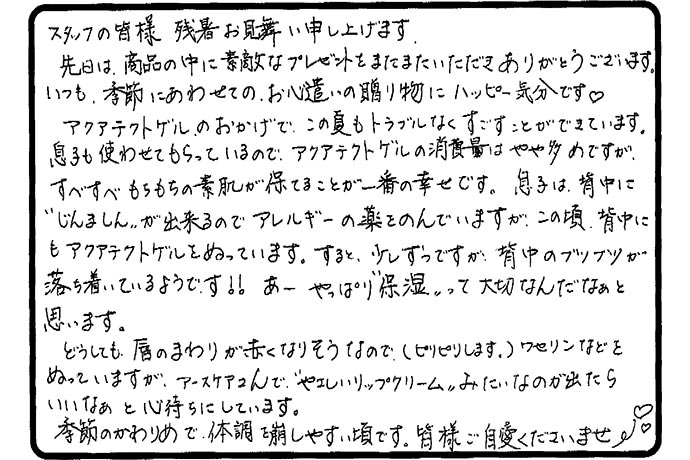 スタッフの皆様 残暑お見舞い申し上げます。
先日は、商品の中に素敵なプレゼントをまたまたいただきありがとうございます。
いつも、季節にあわせての、お心遣いの贈り物に ハッピー気分です♡
アクアテクトゲルのおかげで、この夏もトラブルなくすごすことができています。
息子も使わせてもらっているので、アクアテクトゲルの消費量はやや多めですが、
すべすべもちもちの素肌が保てることが一番の幸せです。 息子は、背中に
"じんましん"が出来るのでアレルギーの薬をのんでいますが、この頃、背中に
もアクアテクトゲルをぬっています。すると、少しずつですが、背中のブツブツが
落ち着いているようです!! あー やっぱり"保湿"って大切なんだなぁと
思います。
どうしても、唇のまわりが赤くなりそうなので、(ピリピリします。)ワセリンなどを
ぬっていますが、アースケアさんで、"やさしいリップクリーム"みたいなのが出たら
いいなぁと心待ちにしています。
季節のかわりめで、体調を崩しやすい頃です。皆様ご自愛くださいませ♡♡